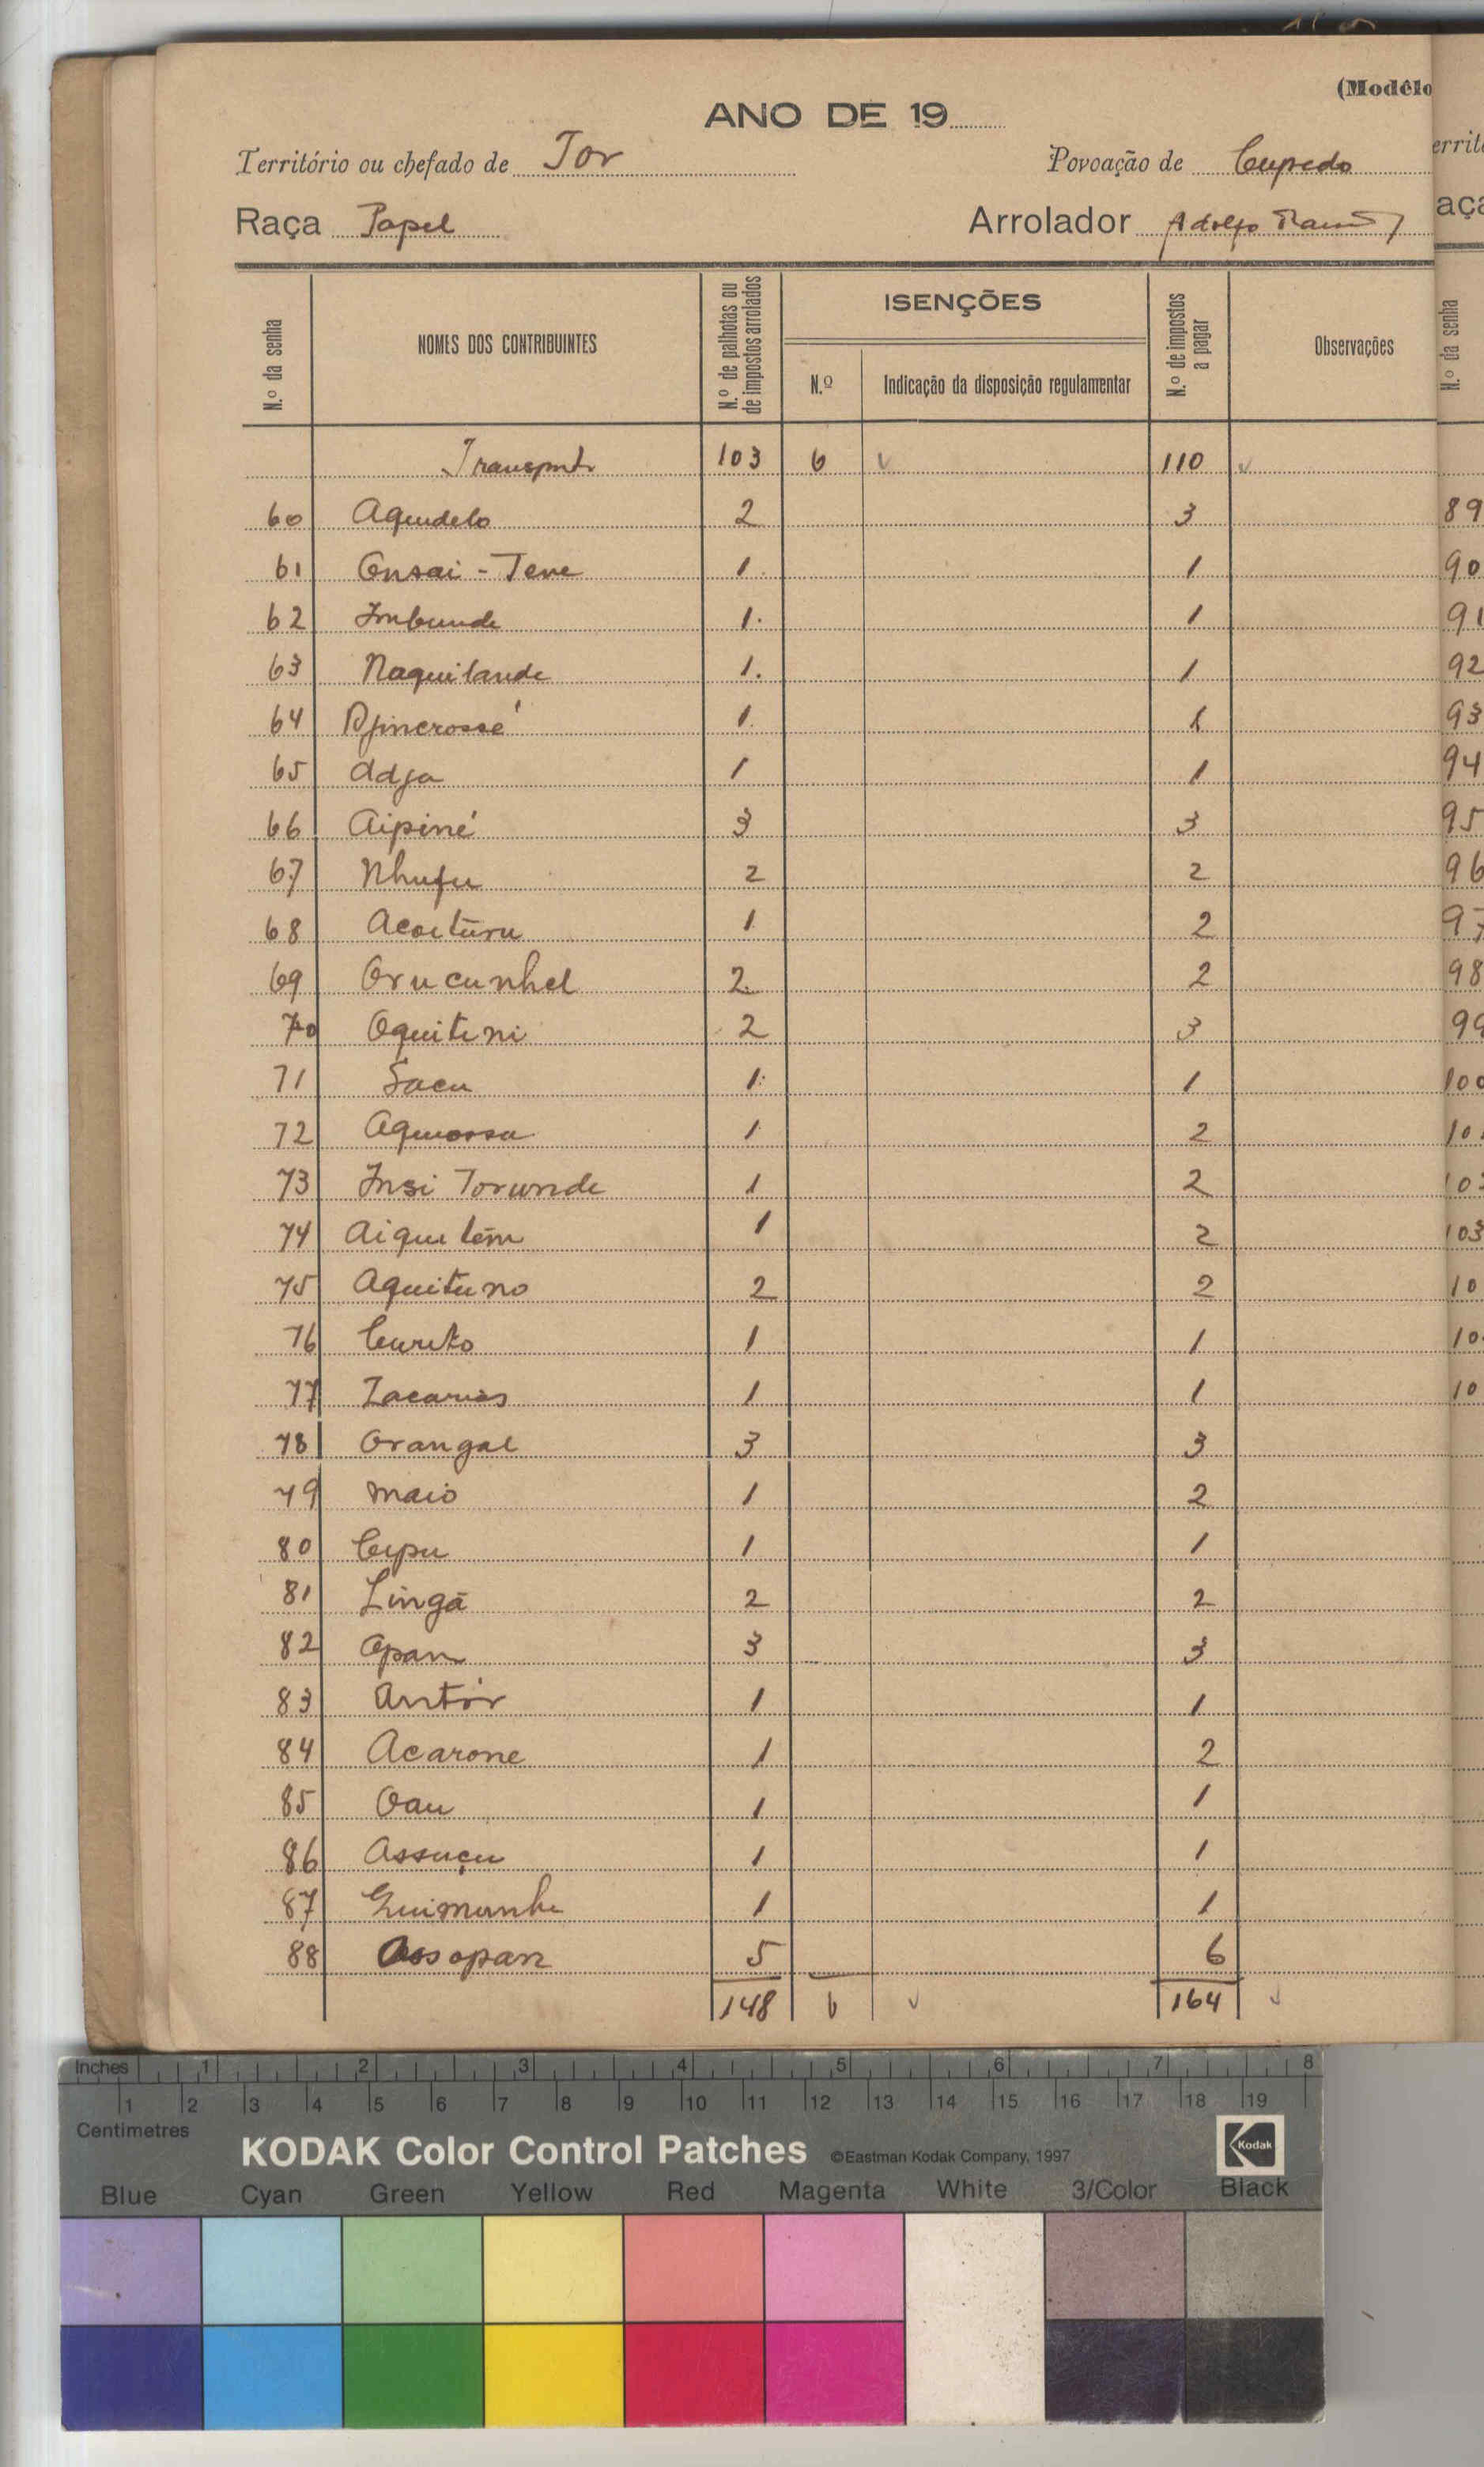 (Modêlo
ANO DE 19
Território ou chefado de Tor Povoação de Cupedo
Raça Papel Arrolador Adolfo
N.º da senha NOMES DOS CONTRIBUINTES N.º de palhotas ou de impostos arrolados ISENÇÕES N.º Indicação da disposição regulamentar N.º de impostos a pagar Observações
Transporte 103 6 v 110 v
60 Aqudelo 2 3
61 Onsai - Teve 1 1
62 Imbunde 1 1
63 Naquilande 1 1
64 1 1
65 Adja 1 1
66 Aipiné 3 3
67 Nhufu 2 2
68 1 2
69 Orucunhel 2 2
70 Oquiteni 2 3
71 Sacu 1 1
72 1 2
73 Insi Torunde 1 2
74 Aiqui têm 1 2
75 Aquituno 2 2
76 Curito 1 1
77 Zacarias 1 1
78 Orangal 3 3
79 Maio 1 2
80 Cupu 1 1
81 Lingã 2 2
82 Opam 3 3
83 Antór 1 1
84 Acarone 1 2
85 Oau 1 1
86 Assuçu 1 1
87 Guimunhe 1 1
88 Assopan 5 6
148 6 v 164 v
errit
aça
N.º da senha
89
90
91
92
93
94
95
96
97
98
99
100
10
10
103
10
10
10
Inches 1 2 3 4 5 6 7 8
1 2 3 4 5 6 7 8 9 10 11 12 13 14 15 16 17 18 19
Centimetres
KODAK Color Control Patches ©Eastman Kodak Company, 1997 Kodak
Blue Cyan Green Yellow Red Magenta White 3/Color Black